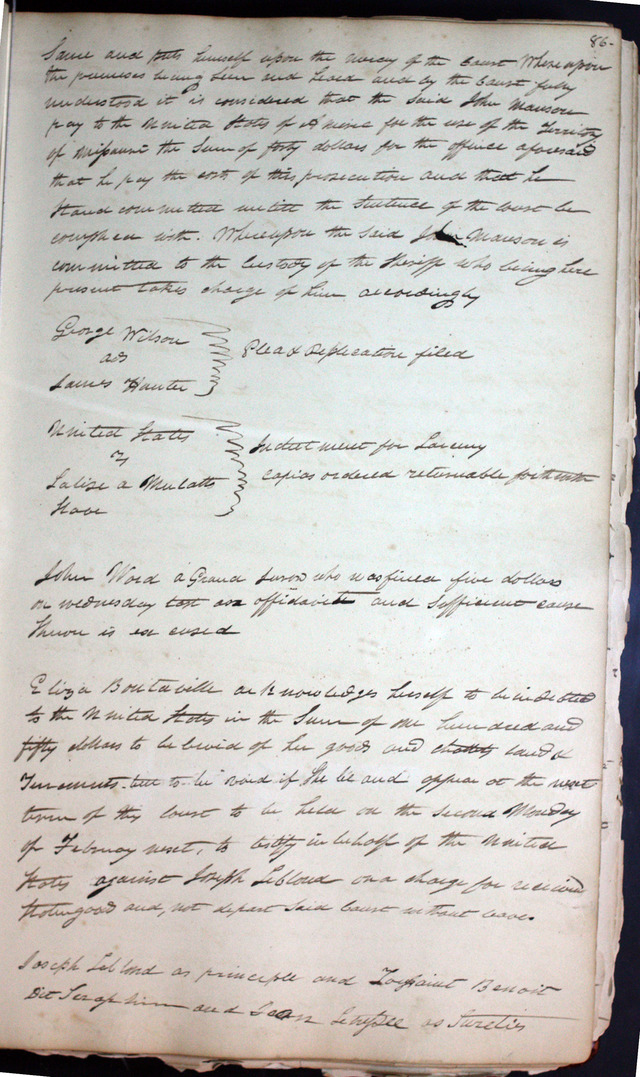 86-
Same and puts himself upon the mercy of the Court Whereupon
the premises being seen and heard and by the Court fully
understood it is considered that the said John Manson
pay to the United States of America for the use of the Territory
of Missouri the Sum of forty dollars for the offence aforesaid
that he pay the costs of this prosecution and that he
stand committed untill the Sentence of the Court be
complied with. Whereupon the Said John Manson is
committed to the Custody of the Sheriff who being here
present takes charge of him accordingly
George Wilson
ads
James Hunter
Plea & Replication filed
United States
vs
a Mulatto
Slave
Indictment for Larceny
Capias ordered returnable forthwith
John Ward a Grand Juror who was fined five dollars
on wednesday last on affidavit and Sufficient cause
Shewn is excused
Eliza Boutaville acknowledges herself to be indebted
to the United States in the Sum of one hundred and
fifty dollars to be levied of her goods and chattels land &
Tenements but to be void if She be and appear at the next
term of this Court to be held on the second Monday
of February next, to testify in behalf of the United
States against Joseph Leblond on a charge for
Stolen goods and, not depart Said Court without leave.
Joseph Leblond as principle and Toussaint Benoit
Dit Seraphim and as Sureties